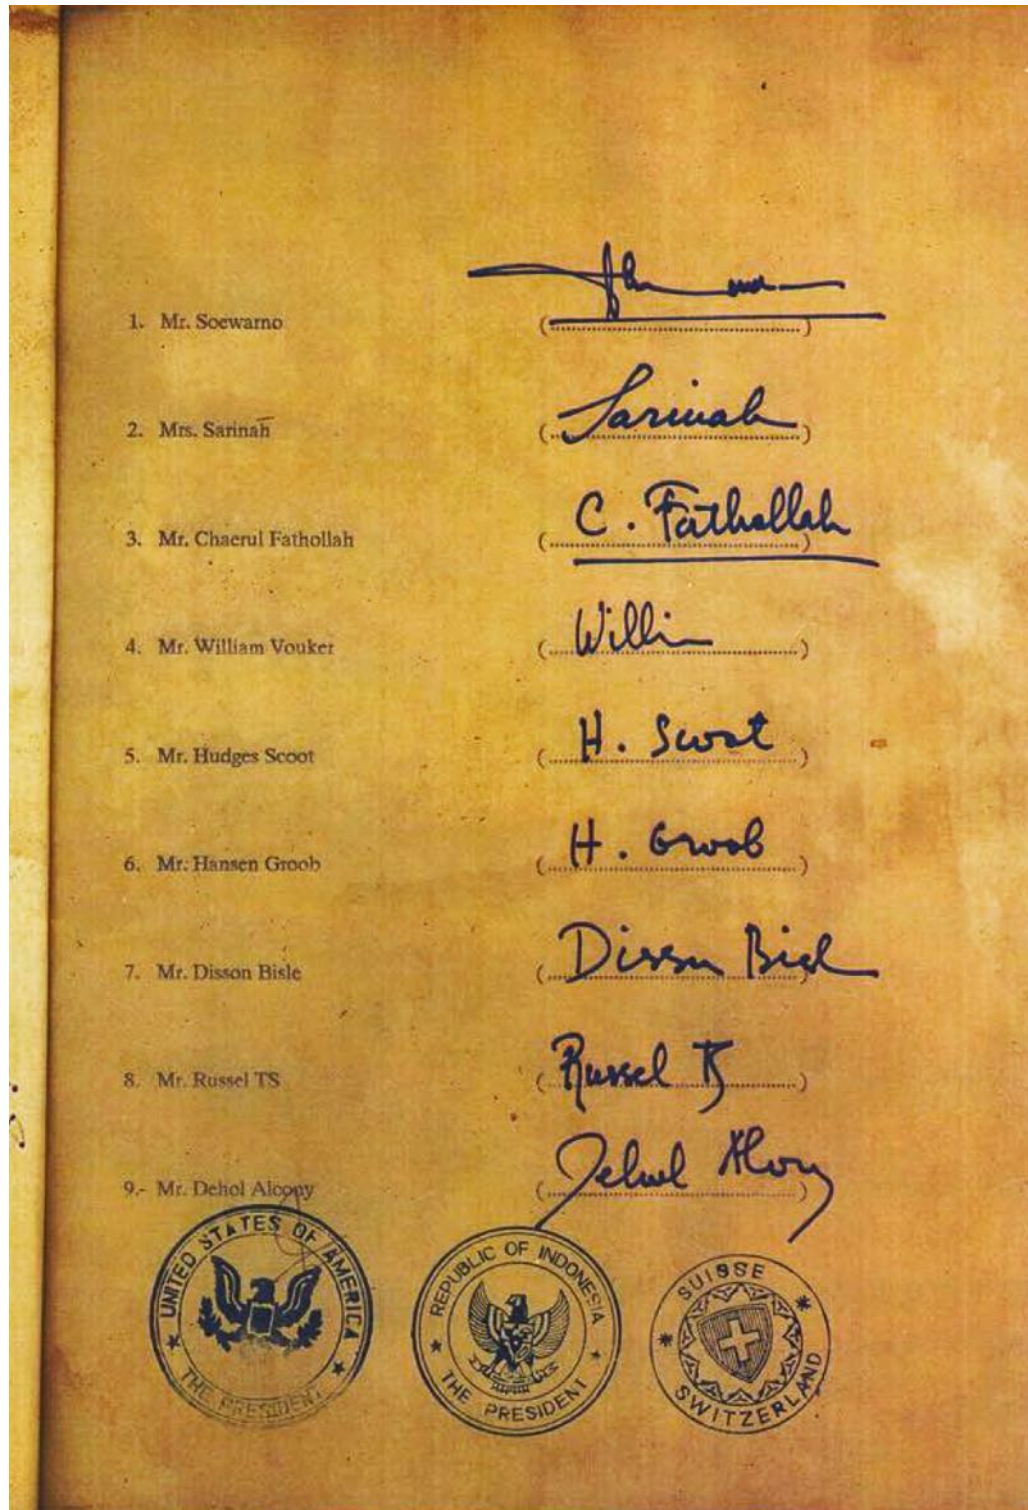 1. Mr. Soewarno (....................)
2. Mrs. Sarinah (Sarinah)
3. Mr. Chaerul Fathollah (C. Fathollah)
4. Mr. William Vouker (Willi)
5. Mr. Hudges Scoot (H. Scoot)
6. Mr. Hansen Groob (H. Groob)
7. Mr. Disson Bisle (Disson)
8. Mr. Russel TS (Russel TS)
9.- Mr. Dehol Alcony (....................)
UNITED STATES OF AMERICA
THE PRESIDENT
REPUBLIC OF INDONESIA
THE PRESIDENT
SUISSE
SWITZERLAND